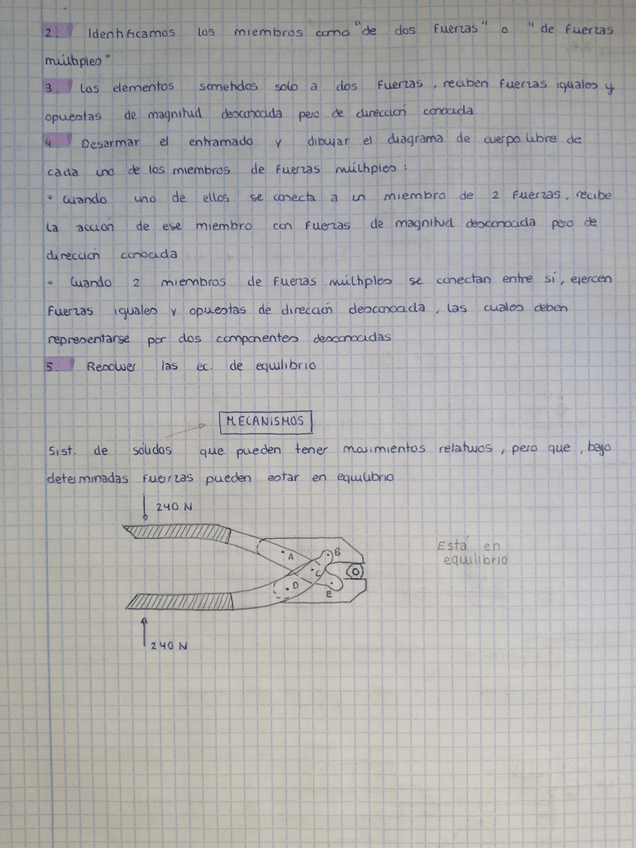 2. Identificamos los miembros como "de dos fuerzas" o "de fuerzas
múltiples"
3. Los elementos sometidos solo a dos fuerzas, reciben fuerzas iguales y
opuestas de magnitud desconocada pero de dirección conocada
4. Desarmar el entramado y dibujar el diagrama de cuerpo libre de
cada uno de los miembros de fuerzas múltiples:
• Cuando uno de ellos se conecta a un miembro de 2 fuerzas, recibe
la acción de ese miembro con fuerzas de magnitud desconocada pero de
dirección conocada
• Cuando 2 miembros de fuerzas múltiples se conectan entre sí, ejercen
fuerzas iguales y opuestas de dirección desconocada, las cuales deben
representarse por dos componentes desconocadas
5. Resolver las ec. de equilibrio
MECANISMOS
Sist. de sólidos que pueden tener movimientos relativos, pero que, bajo
determinadas fuerzas pueden estar en equilibrio
240 N
A
B
C
D
E
Está en
equilibrio
240 N